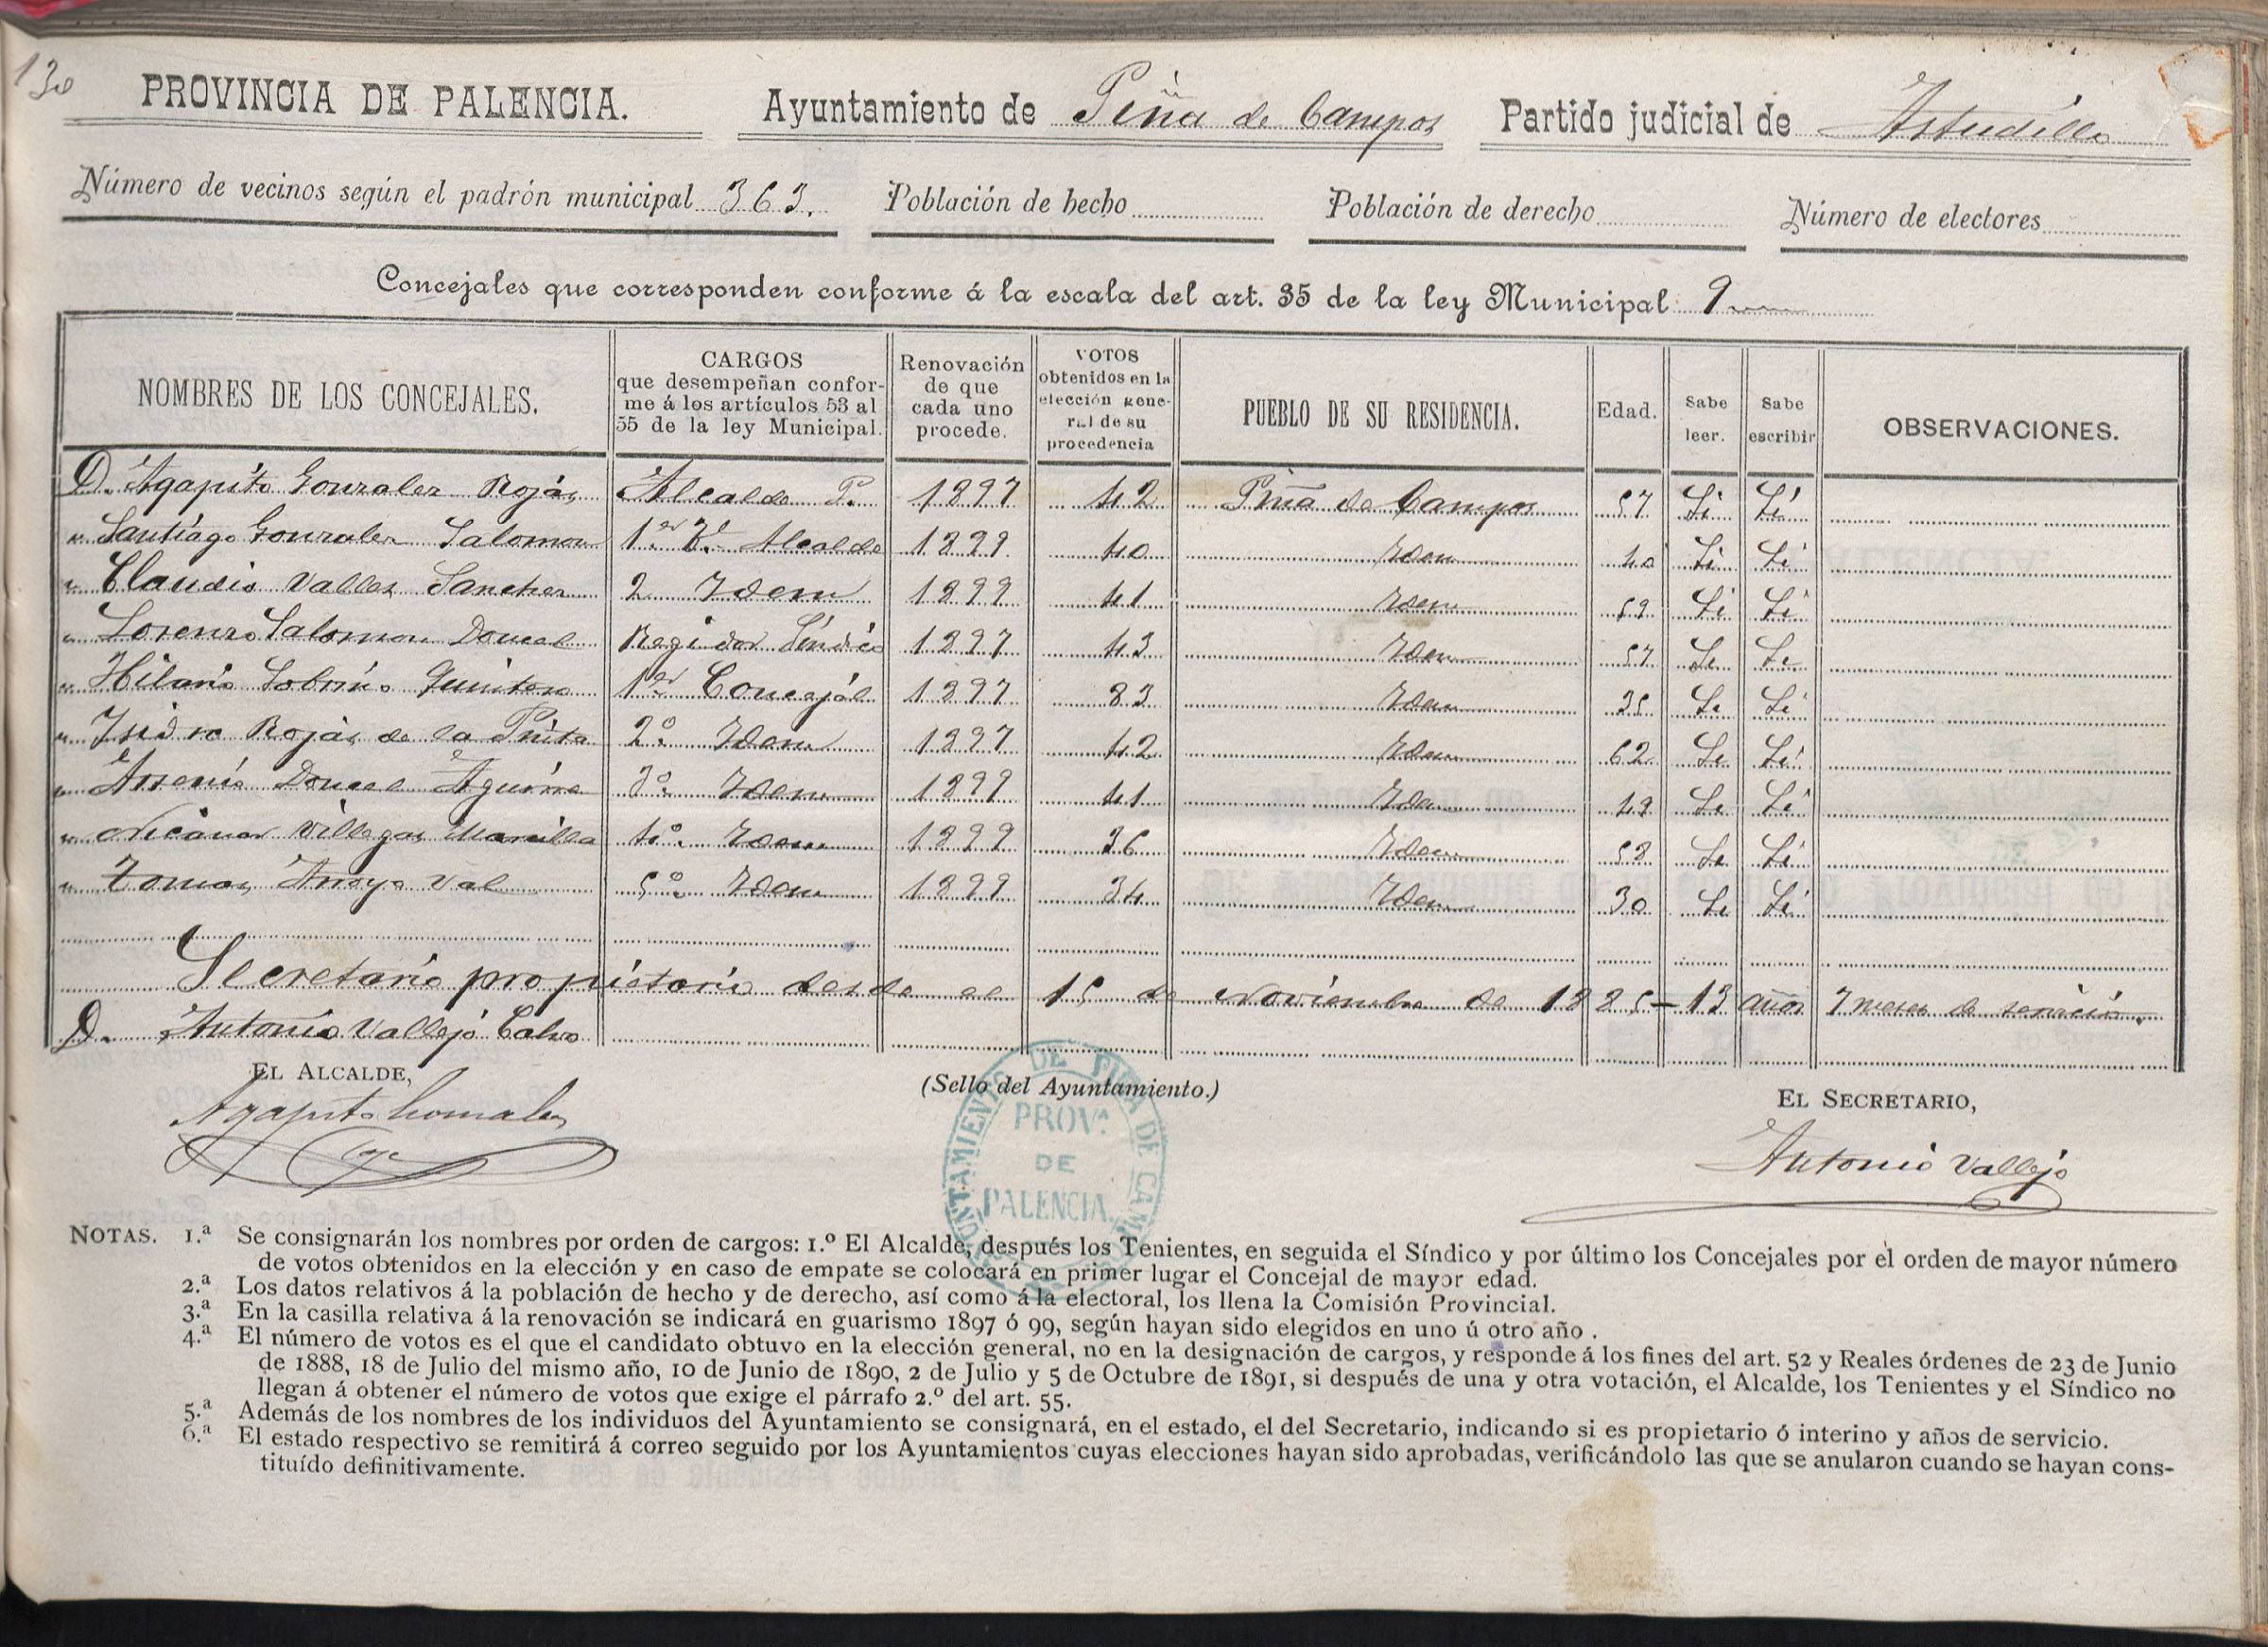 130
PROVINCIA DE PALENCIA. Ayuntamiento de Piña de Campos Partido judicial de Astudillo
Número de vecinos según el padrón municipal 363. Población de hecho Población de derecho Número de electores
Concejales que corresponden conforme á la escala del art. 35 de la ley Municipal 9
NOMBRES DE LOS CONCEJALES. CARGOS que desempeñan conforme á los artículos 53 al 55 de la ley Municipal. Renovación de que cada uno procede. VOTOS obtenidos en la elección general de su procedencia PUEBLO DE SU RESIDENCIA. Edad. Sabe leer. Sabe escribir OBSERVACIONES.
D. Agapito Gonzalez Rojas Alcalde P. 1897 42 Piña de Campos 57 Si Si
" Santiago Gonzalez Salomon 1er T. Alcalde 1899 40 Idem 40 Si Si
" Claudio Valles Sanchez 2 Idem 1899 41 Idem 59 Si Si
" Lorenzo Salomon Doncel Regidor Síndico 1897 43 Idem 57 Si Si
" Hilario Sobrino Quintero 1er Concejál 1897 83 Idem 35 Si Si
" Isidro Rojas de la Pinta 2º Idem 1897 42 Idem 62 Si Si
" Arsenio Doncel Aguirre 3º Idem 1899 41 Idem 49 Si Si
" Nicanor Villegas Mancilla 4º Idem 1899 36 Idem 58 Si Si
" Tomas Arroyo Val 5º Idem 1899 34 Idem 30 Si Si
Secretario propietario desde el 15 de Noviembre de 1885 - 13 años 7 meses de servicio.
D. Antonio Vallejo Calvo
EL ALCALDE, (Sello del Ayuntamiento.) EL SECRETARIO,
Agapito Gonzalez
Antonio Vallejo
AYUNTAMIENTO DE PIÑA DE CAMPOS
PROVª
DE
PALENCIA.
NOTAS. 1.ª Se consignarán los nombres por orden de cargos: 1.º El Alcalde, después los Tenientes, en seguida el Síndico y por último los Concejales por el orden de mayor número
de votos obtenidos en la elección y en caso de empate se colocará en primer lugar el Concejal de mayor edad.
2.ª Los datos relativos á la población de hecho y de derecho, así como á la electoral, los llena la Comisión Provincial.
3.ª En la casilla relativa á la renovación se indicará en guarismo 1897 ó 99, según hayan sido elegidos en uno ú otro año .
4.ª El número de votos es el que el candidato obtuvo en la elección general, no en la designación de cargos, y responde á los fines del art. 52 y Reales órdenes de 23 de Junio
de 1888, 18 de Julio del mismo año, 10 de Junio de 1890, 2 de Julio y 5 de Octubre de 1891, si después de una y otra votación, el Alcalde, los Tenientes y el Síndico no
llegan á obtener el número de votos que exige el párrafo 2.º del art. 55.
5.ª Además de los nombres de los individuos del Ayuntamiento se consignará, en el estado, el del Secretario, indicando si es propietario ó interino y años de servicio.
6.ª El estado respectivo se remitirá á correo seguido por los Ayuntamientos cuyas elecciones hayan sido aprobadas, verificándolo las que se anularon cuando se hayan cons-
tituído definitivamente.